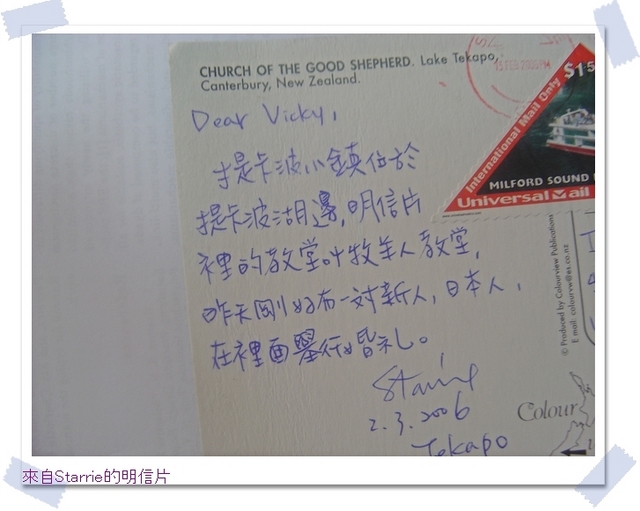 CHURCH OF THE GOOD SHEPHERD. Lake Tekapo,
Canterbury, New Zealand.
Dear Vicky,
提卡波小鎮位於
提卡波湖邊,明信片
裡的教堂叫牧羊人教堂,
昨天剛好有一對新人,日本人,
在裡面舉行婚礼。
Starrie
2.3.2006
Tekapo
$1.5
International Mail Only
MILFORD SOUND
Universal Mail
© Produced by Colourview Publications
E mail: colourvw@es.co.nz
Colour
來自Starrie的明信片